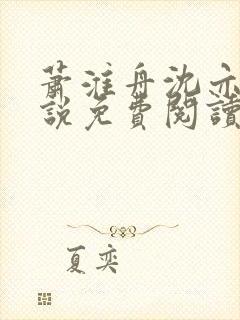 蕭淮舟沈亦
說免費閱讀
夏奕